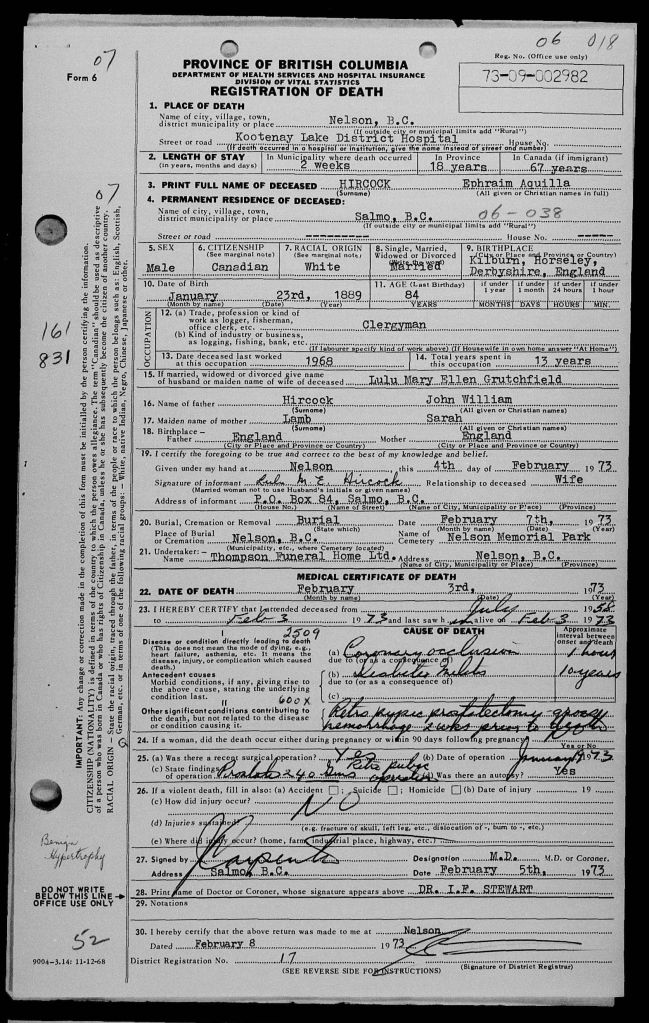 07
06 018
Form 6
PROVINCE OF BRITISH COLUMBIA
DEPARTMENT OF HEALTH SERVICES AND HOSPITAL INSURANCE
DIVISION OF VITAL STATISTICS
REGISTRATION OF DEATH
Reg. No. (Office use only)
73-09-002982
1. PLACE OF DEATH
Name of city, village, town, district municipality or place Nelson, B.C.
(If outside city or municipal limits add "Rural")
Street or road Kootenay Lake District Hospital House No.
(If death occurred in a hospital or institution, give the name instead of street and number)
2. LENGTH OF STAY (in years, months and days) In Municipality where death occurred 2 weeks In Province 18 years In Canada (if immigrant) 67 years
07
3. PRINT FULL NAME OF DECEASED HIRCOCK Ephraim Aquilla
(Surname) (All given or Christian names in full)
4. PERMANENT RESIDENCE OF DECEASED:
Name of city, village, town, district municipality or place Salmo, B.C. 06-038
(If outside city or municipal limits add "Rural")
Street or road ---------- House No. -----
5. SEX Male
6. CITIZENSHIP (See marginal note) Canadian
7. RACIAL ORIGIN (See marginal note) White
8. Single, Married, Widowed or Divorced Married
9. BIRTHPLACE (City or Place and Province or Country) Kilburn, Horseley, Derbyshire, England
10. Date of Birth January 23rd, 1889
(Month by name) (Date) (Year)
11. AGE (Last Birthday) 84 YEARS
if under 1 year MONTHS
if under 1 month DAYS
if under 24 hours HOURS
if under 1 hour MIN.
OCCUPATION
12. (a) Trade, profession or kind of work as logger, fisherman, office clerk, etc. Clergyman
(b) Kind of industry or business, as logging, fishing, bank, etc.
(If labourer specify kind of work above) (If Housewife in own home answer "At Home")
13. Date deceased last worked at this occupation 1968
14. Total years spent in this occupation 13 years
15. If married, widowed or divorced give name of husband or maiden name of wife of deceased Lulu Mary Ellen Grutchfield
16. Name of father Hircock John William
(Surname) (All given or Christian names)
17. Maiden name of mother Lamb Sarah
(Surname) (All given or Christian names)
18. Birthplace – Father England Mother England
(City or Place and Province or Country) (City or Place and Province or Country)
19. I certify the foregoing to be true and correct to the best of my knowledge and belief.
Given under my hand at Nelson, this 4th day of February 1973
Signature of informant Lulu M. E. Hircock Relationship to deceased Wife
(Married woman not to use husband's initials or given names)
Address of informant P.O. Box 84, Salmo, B.C.
(House No.) (Name of Street) (Name of City, Municipality or Place) (Province)
20. Burial, Cremation or Removal Burial Date February 7th, 1973
(State which) (Month by name) (Date) (Year)
Place of Burial or Cremation Nelson, B.C. Name of Cemetery Nelson Memorial Park
(Municipality, etc., where Cemetery located)
21. Undertaker: – Name Thompson Funeral Home Ltd. Address Nelson, B.C.
(Name of City, Municipality or Place) (Province)
MEDICAL CERTIFICATE OF DEATH
22. DATE OF DEATH February 3rd, 1973
(Month by name) (Date) (Year)
23. I HEREBY CERTIFY that I attended deceased from July 1958
to Feb 3 1973 and last saw h im alive on Feb 3 1973
I 2509
Disease or condition directly leading to death
(This does not mean the mode of dying, e.g., heart failure, asthenia, etc. It means the disease, injury, or complication which caused death.)
Antecedent causes
Morbid conditions, if any, giving rise to the above cause, stating the underlying condition last.
II 600X
Other significant conditions contributing to the death, but not related to the disease or condition causing it.
CAUSE OF DEATH
Approximate interval between onset and death
(a) Coronary occlusion 1 hour
due to (or as a consequence of)
(b) Diabetes Mellitus 10 years
due to (or as a consequence of)
(c)
Retro pubic prostatectomy
hemorrhage 2 wks prior to death
24. If a woman, did the death occur either during pregnancy or within 90 days following pregnancy?
Yes or No
25. (a) Was there a recent surgical operation? Yes (b) Date of operation January 1973
(c) State findings of operation Prostate 240 gms Retro pubic operation (d) Was there an autopsy? Yes
26. If a violent death, fill in also: (a) Accident ; Suicide ; Homicide (b) Date of injury 19
(c) How did injury occur? NO
(d) Injuries sustained
(e.g. fracture of skull, left leg, etc., dislocation of -, burn to -, etc.)
(e) Where did injury occur? (home, farm, industrial place, highway, etc.)
27. Signed by Carpenter Designation M.D. M.D. or Coroner.
Address Salmo, B.C. Date February 5th, 1973
28. Print name of Doctor or Coroner, whose signature appears above DR. I.F. STEWART
29. Notations
30. I hereby certify that the above return was made to me at Nelson
Dated February 8 1973
District Registration No. 17 (Signature of District Registrar)
(SEE REVERSE SIDE FOR INSTRUCTIONS)
161
831
IMPORTANT: Any change or correction made in the completion of this form must be initialled by the person certifying the information.
CITIZENSHIP (NATIONALITY) is defined in terms of the country to which the person owes allegiance. The term "Canadian" should be used as descriptive of a person who was born in Canada or who has rights of Citizenship in Canada, unless he or she has subsequently become the citizen of another country.
RACIAL ORIGIN – State the racial origin, traced through the father, in terms of the people or race to which the person belongs such as: English, Scottish, German, etc. or in terms of one of the following racial groups: – White, native Indian, Negro, Chinese, Japanese or other.
Benign Hypertrophy
DO NOT WRITE
BELOW THIS LINE
OFFICE USE ONLY
52
9004-3.14: 11-12-68